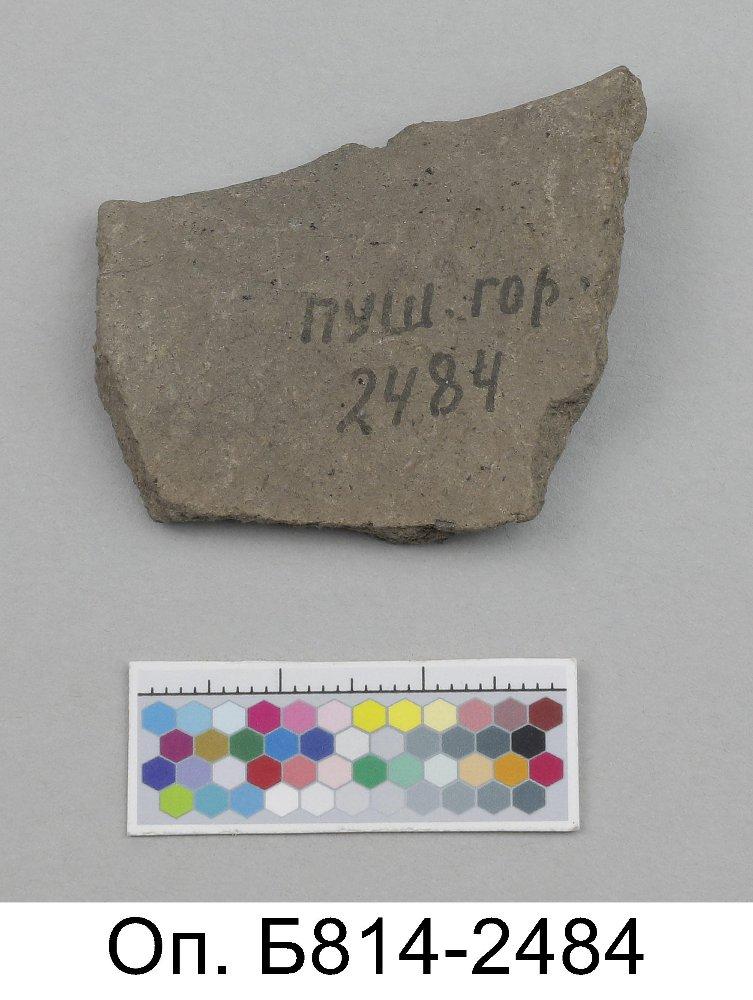 пуш. гор.
2484
Оп. Б814-2484